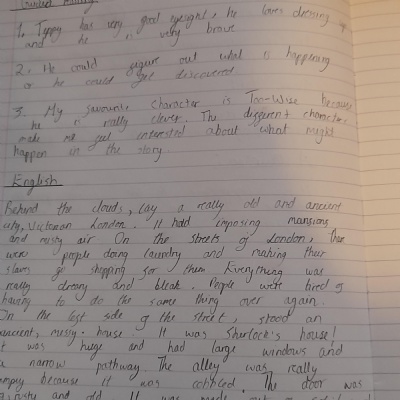 Guided
1. Typpy has very good eyesight, he loves dressing up
and he is very brave
2. He could figure out what is happening
or he could get discovered
3. My favourite character is Too-Wise because
he is really clever. The different characters
make me feel interested about what might
happen in the story.
English
Behind the clouds, lay a really old and ancient
city, Victorian London. It had imposing mansions
and misty air On the streets of London, there
were people doing laundry and making their
slaves go shopping for them Everything was
really dreary and bleak. People were tired of
having to do the same thing over again.
On the left side of the street, stood an
ancient, musty house. It was Sherlock's house!
It was huge and had large windows and
a narrow pathway. The alley was really
bumpy because it was cobbled. The door was
rusty and old. It was made out of